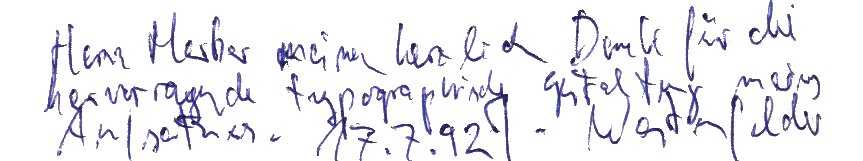 Herrn Merker meinen herzlich Dank für die
hervorragende typographische gestaltung meines
Aufsatzes. 17.7.92